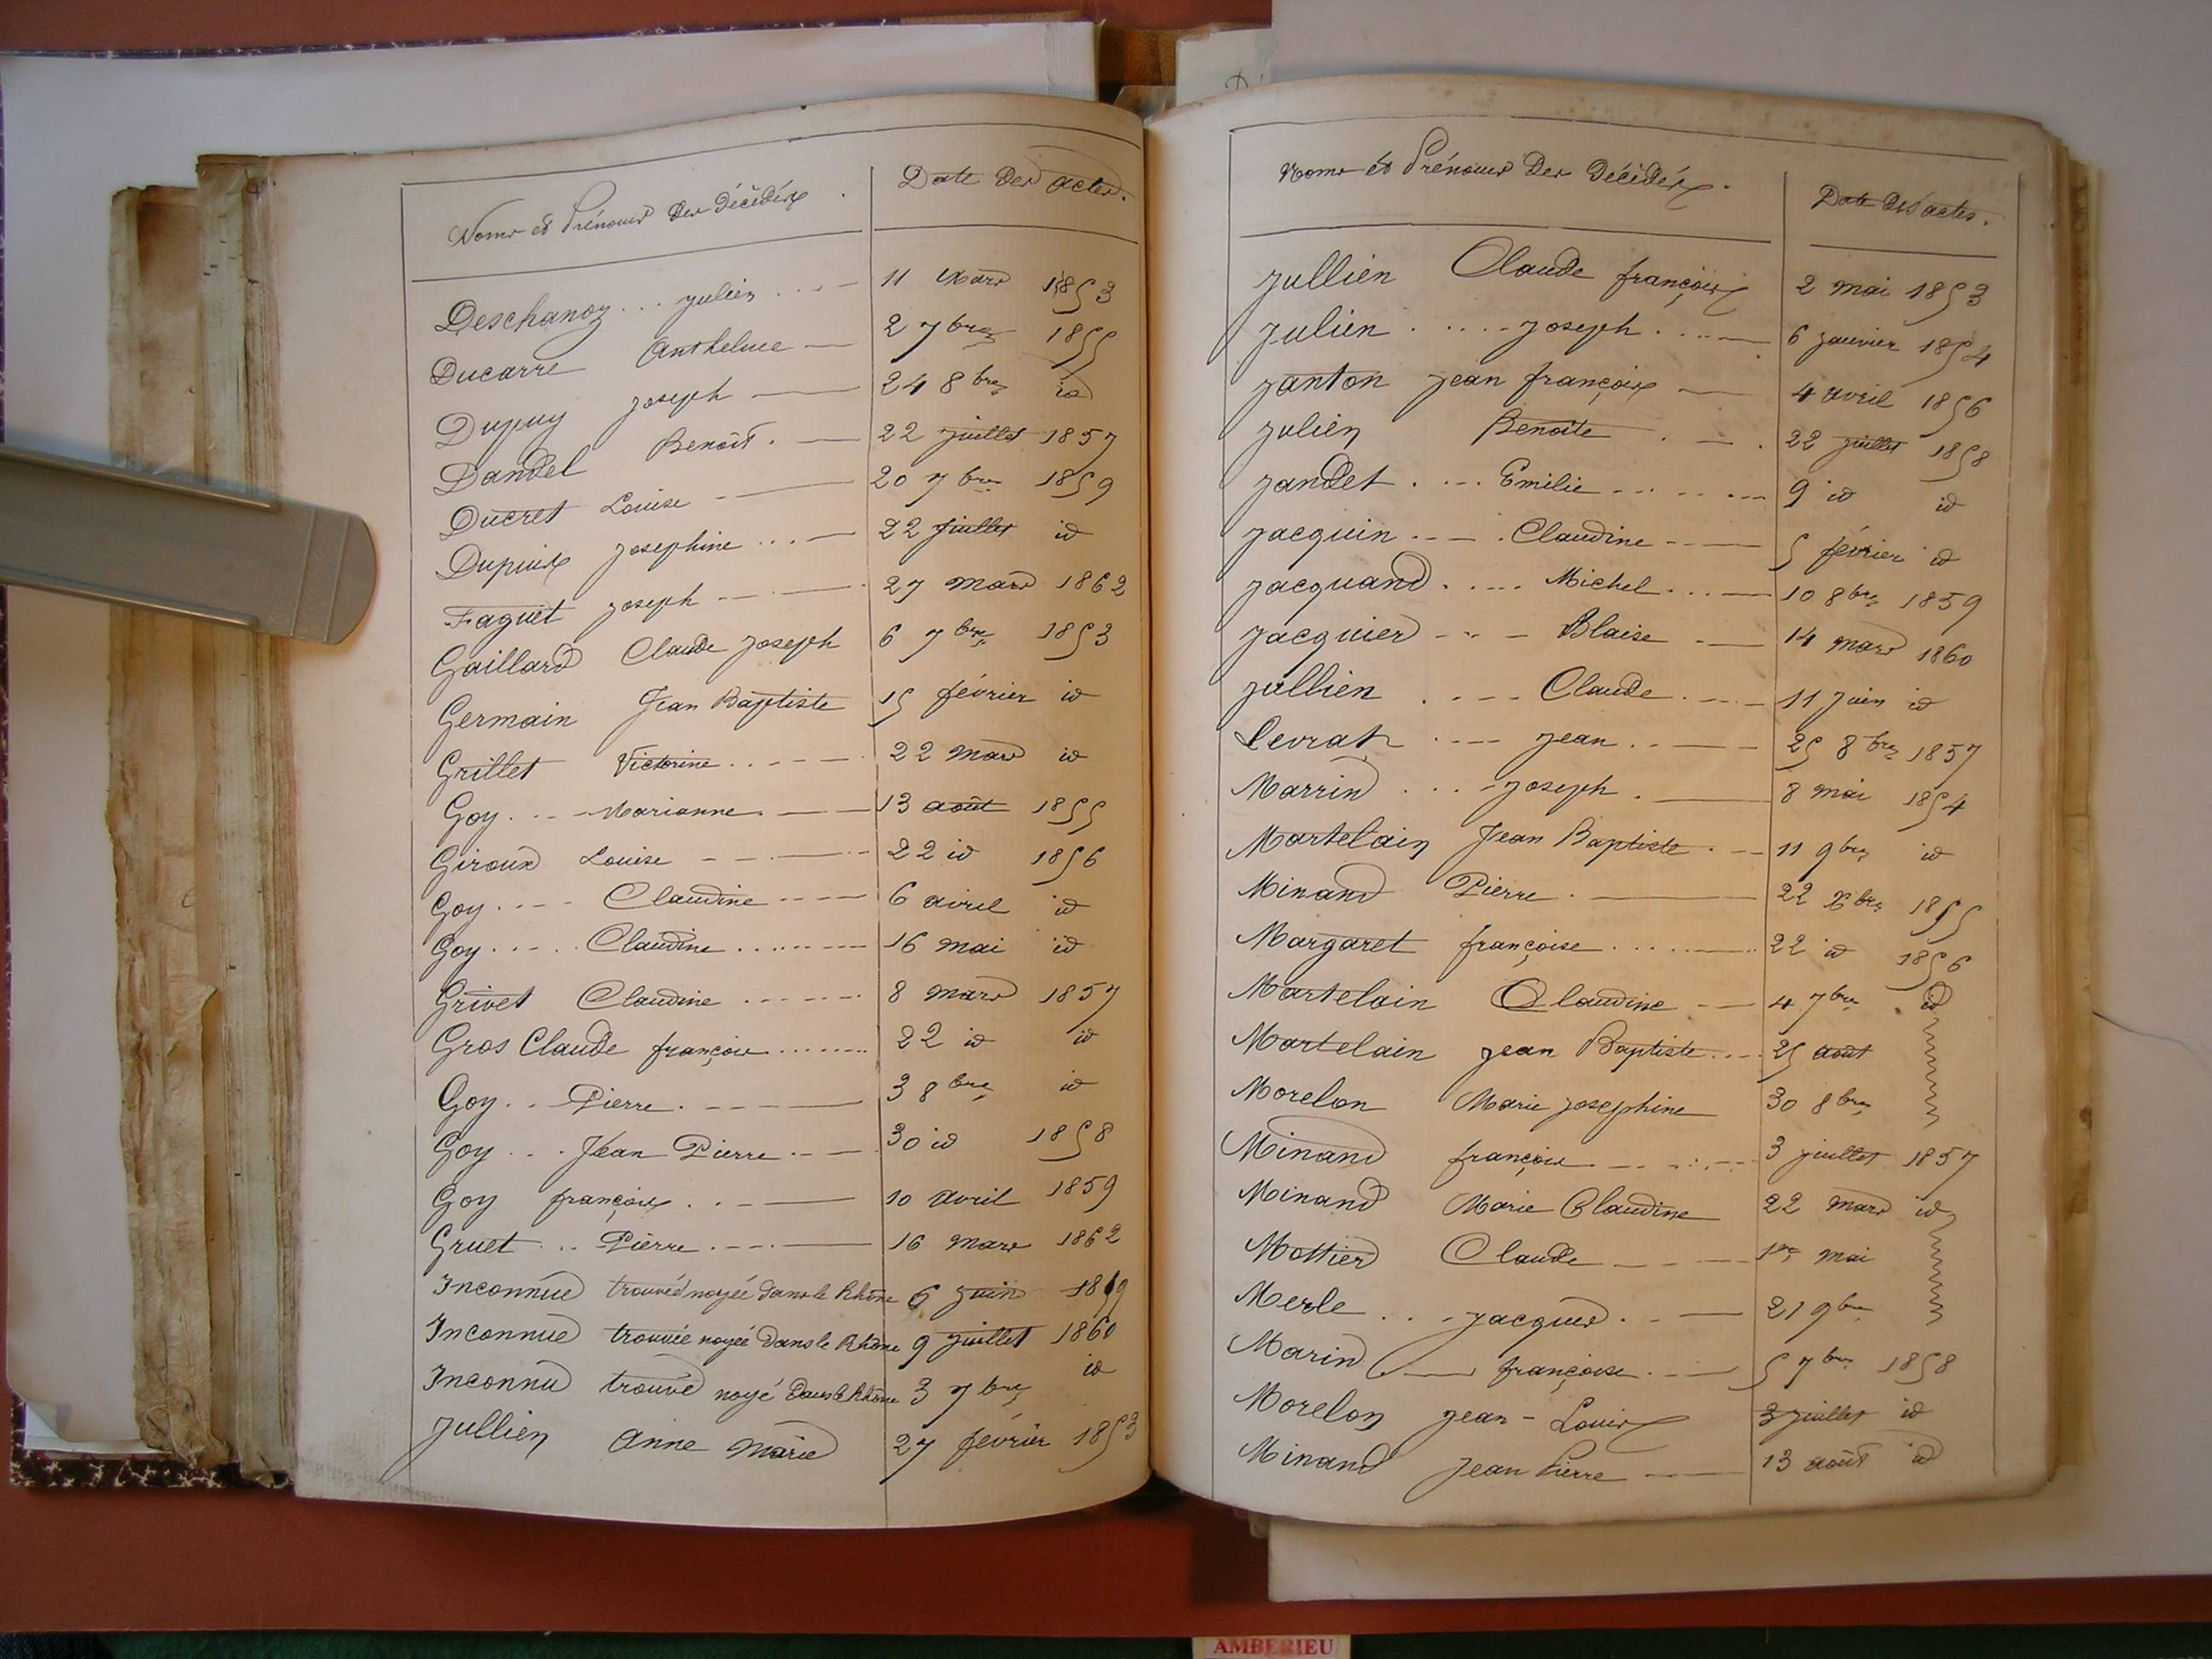 Noms et Prénoms des décédés. Date des actes.
Deschanoz ... Julien .... 11 Mars 1853
Ducarre Anthelme 2 7bre 1855
Dupuy Joseph 24 8bre id
Dandel Benoit. 22 juillet 1857
Ducret Louise 20 7bre 1859
Dupuis Josephine ... 22 juillet id
Faguet Joseph 27 mars 1862
Gaillard Claude Joseph 6 7bre 1853
Germain Jean Baptiste 15 février id
Grillet Victorine 22 mars id
Goy Marianne 13 août 1855
Giroud Louise 22 id 1856
Goy Claudine 6 avril id
Goy Claudine 16 mai id
Grivet Claudine 8 mars 1857
Gros Claude françois 22 id id
Goy Pierre 3 8bre id
Goy Jean Pierre 30 id 1858
Goy françois 10 avril 1859
Gruet Pierre 16 mars 1862
Inconnue trouvée noyée dans le Rhône 6 juin
Inconnue trouvée noyée dans le Rhône 9 juillet 1860
Inconnu trouvé noyé dans le Rhône 3 7bre id
Jullien Anne Marie 27 février 1853
Noms et Prénoms des décédés. Date des actes.
Jullien Claude françois 2 mai 1853
Julien Joseph 6 janvier 1854
Janton Jean françois 4 avril 1856
Julien Benoite 22 juillet 1858
Jandet Emilie 9 id id
Jacquin Claudine 5 février id
Jacquand Michel 10 8bre 1859
Jacquier Blaise 14 mars 1860
Jullien Claude 11 juin id
Levrat Jean 25 8bre 1857
Marrin Joseph 8 mai 1854
Martelain Jean Baptiste 11 9bre id
Minand Pierre 22 Xbre 1855
Margaret françoise 22 id 1856
Martelain Claudine 4 7bre id
Martelain Jean Baptiste 25 août
Morelon Marie Josephine 30 8bre
Minand françois 3 juillet 1857
Minand Marie Claudine 22 mars id
Mottier Claude 1er mai
Merle Jacques 21 9bre
Marin françoise 5 7bre 1858
Morelon Jean-Louis 3 juillet id
Minand Jean Pierre 13 août id
AMBERIEU